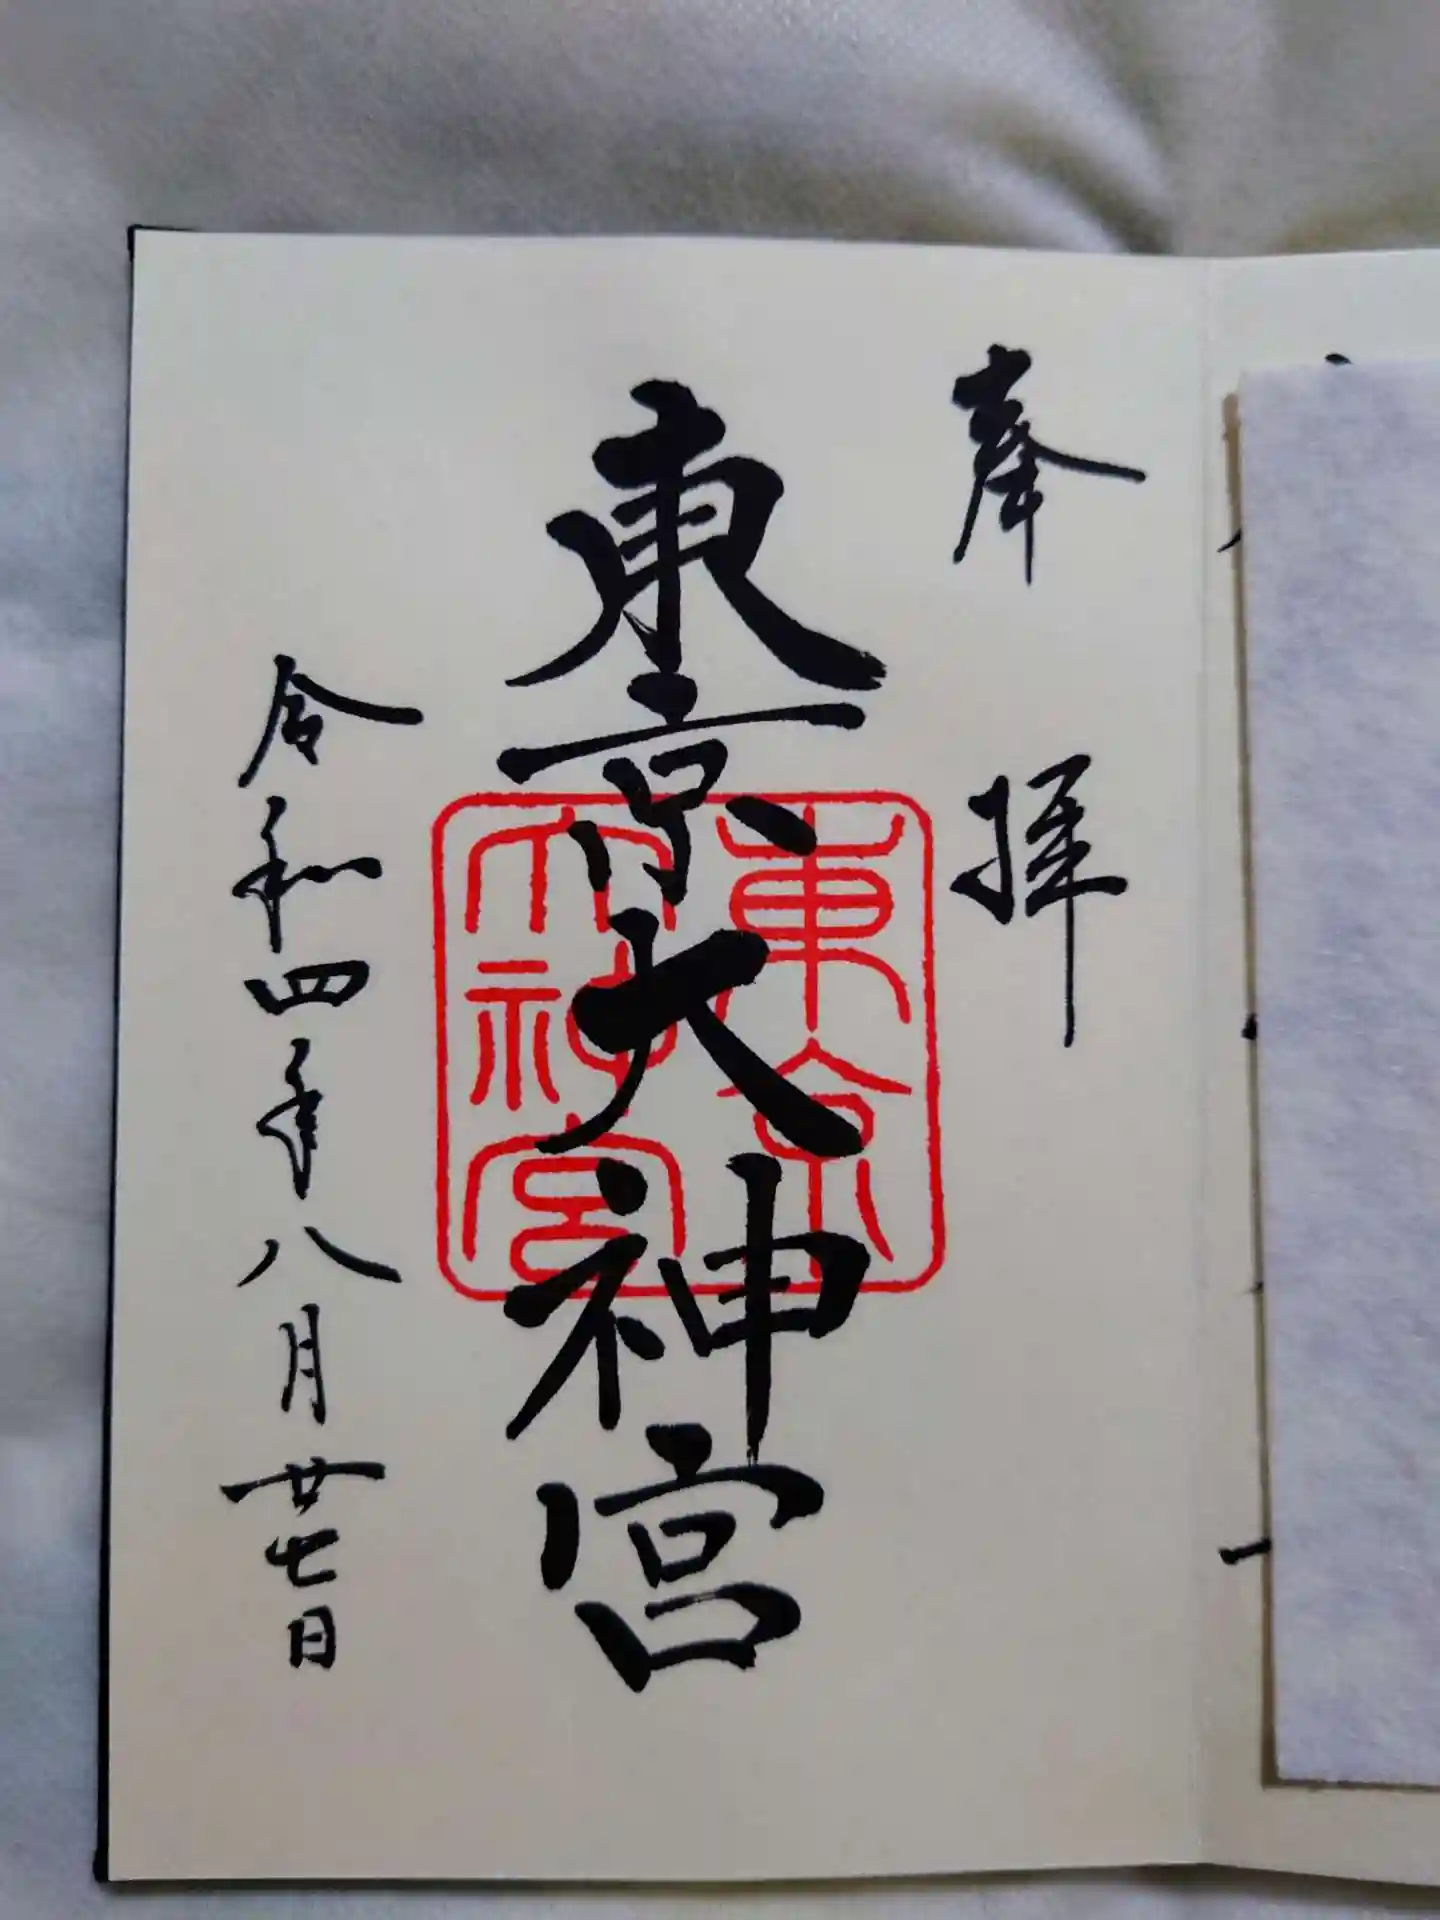 奉拝
東京大神宮
東京
大神宮
令和四年八月廿七日